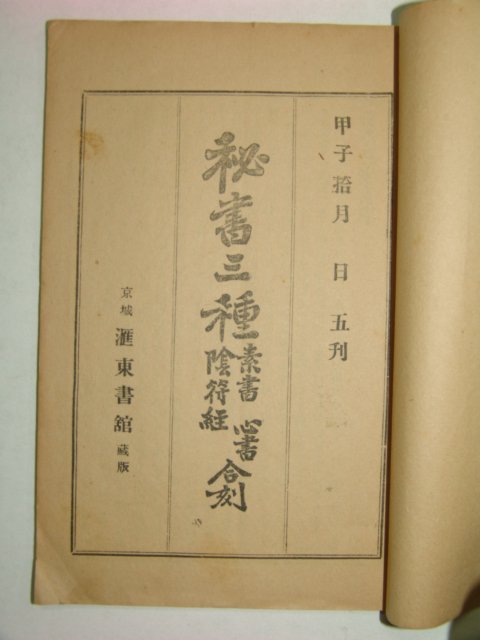 甲子拾月 日 五刊
祕書三種
素書 心書
陰符經
合刻
京城 滙東書舘 藏版